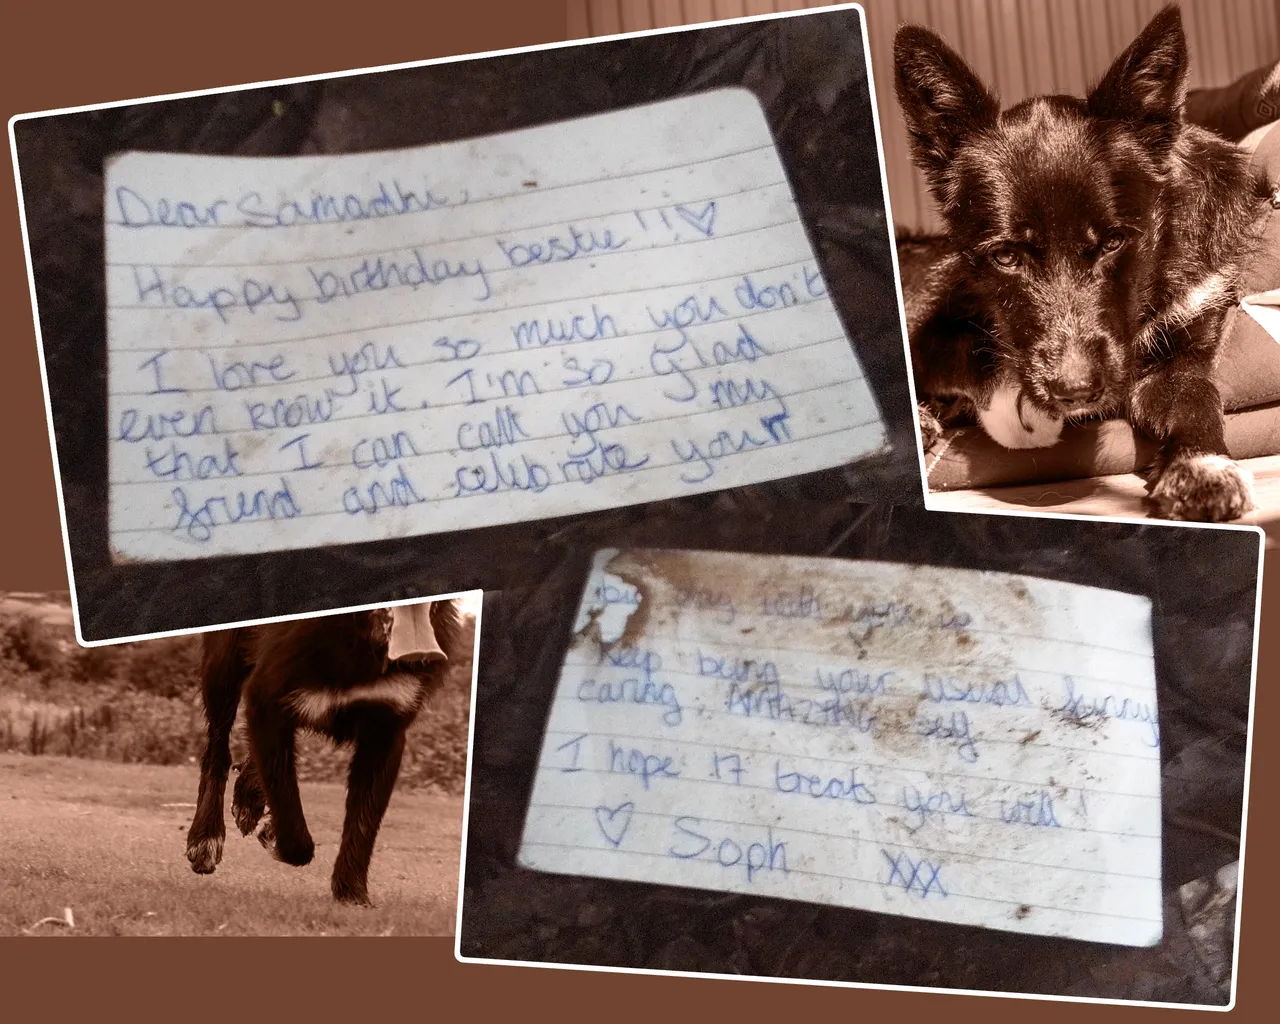 Dear Samadhi,
Happy birthday bestie !! ♡
I love you so much you don't
even know it. I'm so glad
that I can call you my
friend and celebrate your
day with you
Keep being your usual funny
caring, AMAZING self
I hope 17 treats you well!
♡ Soph xxx